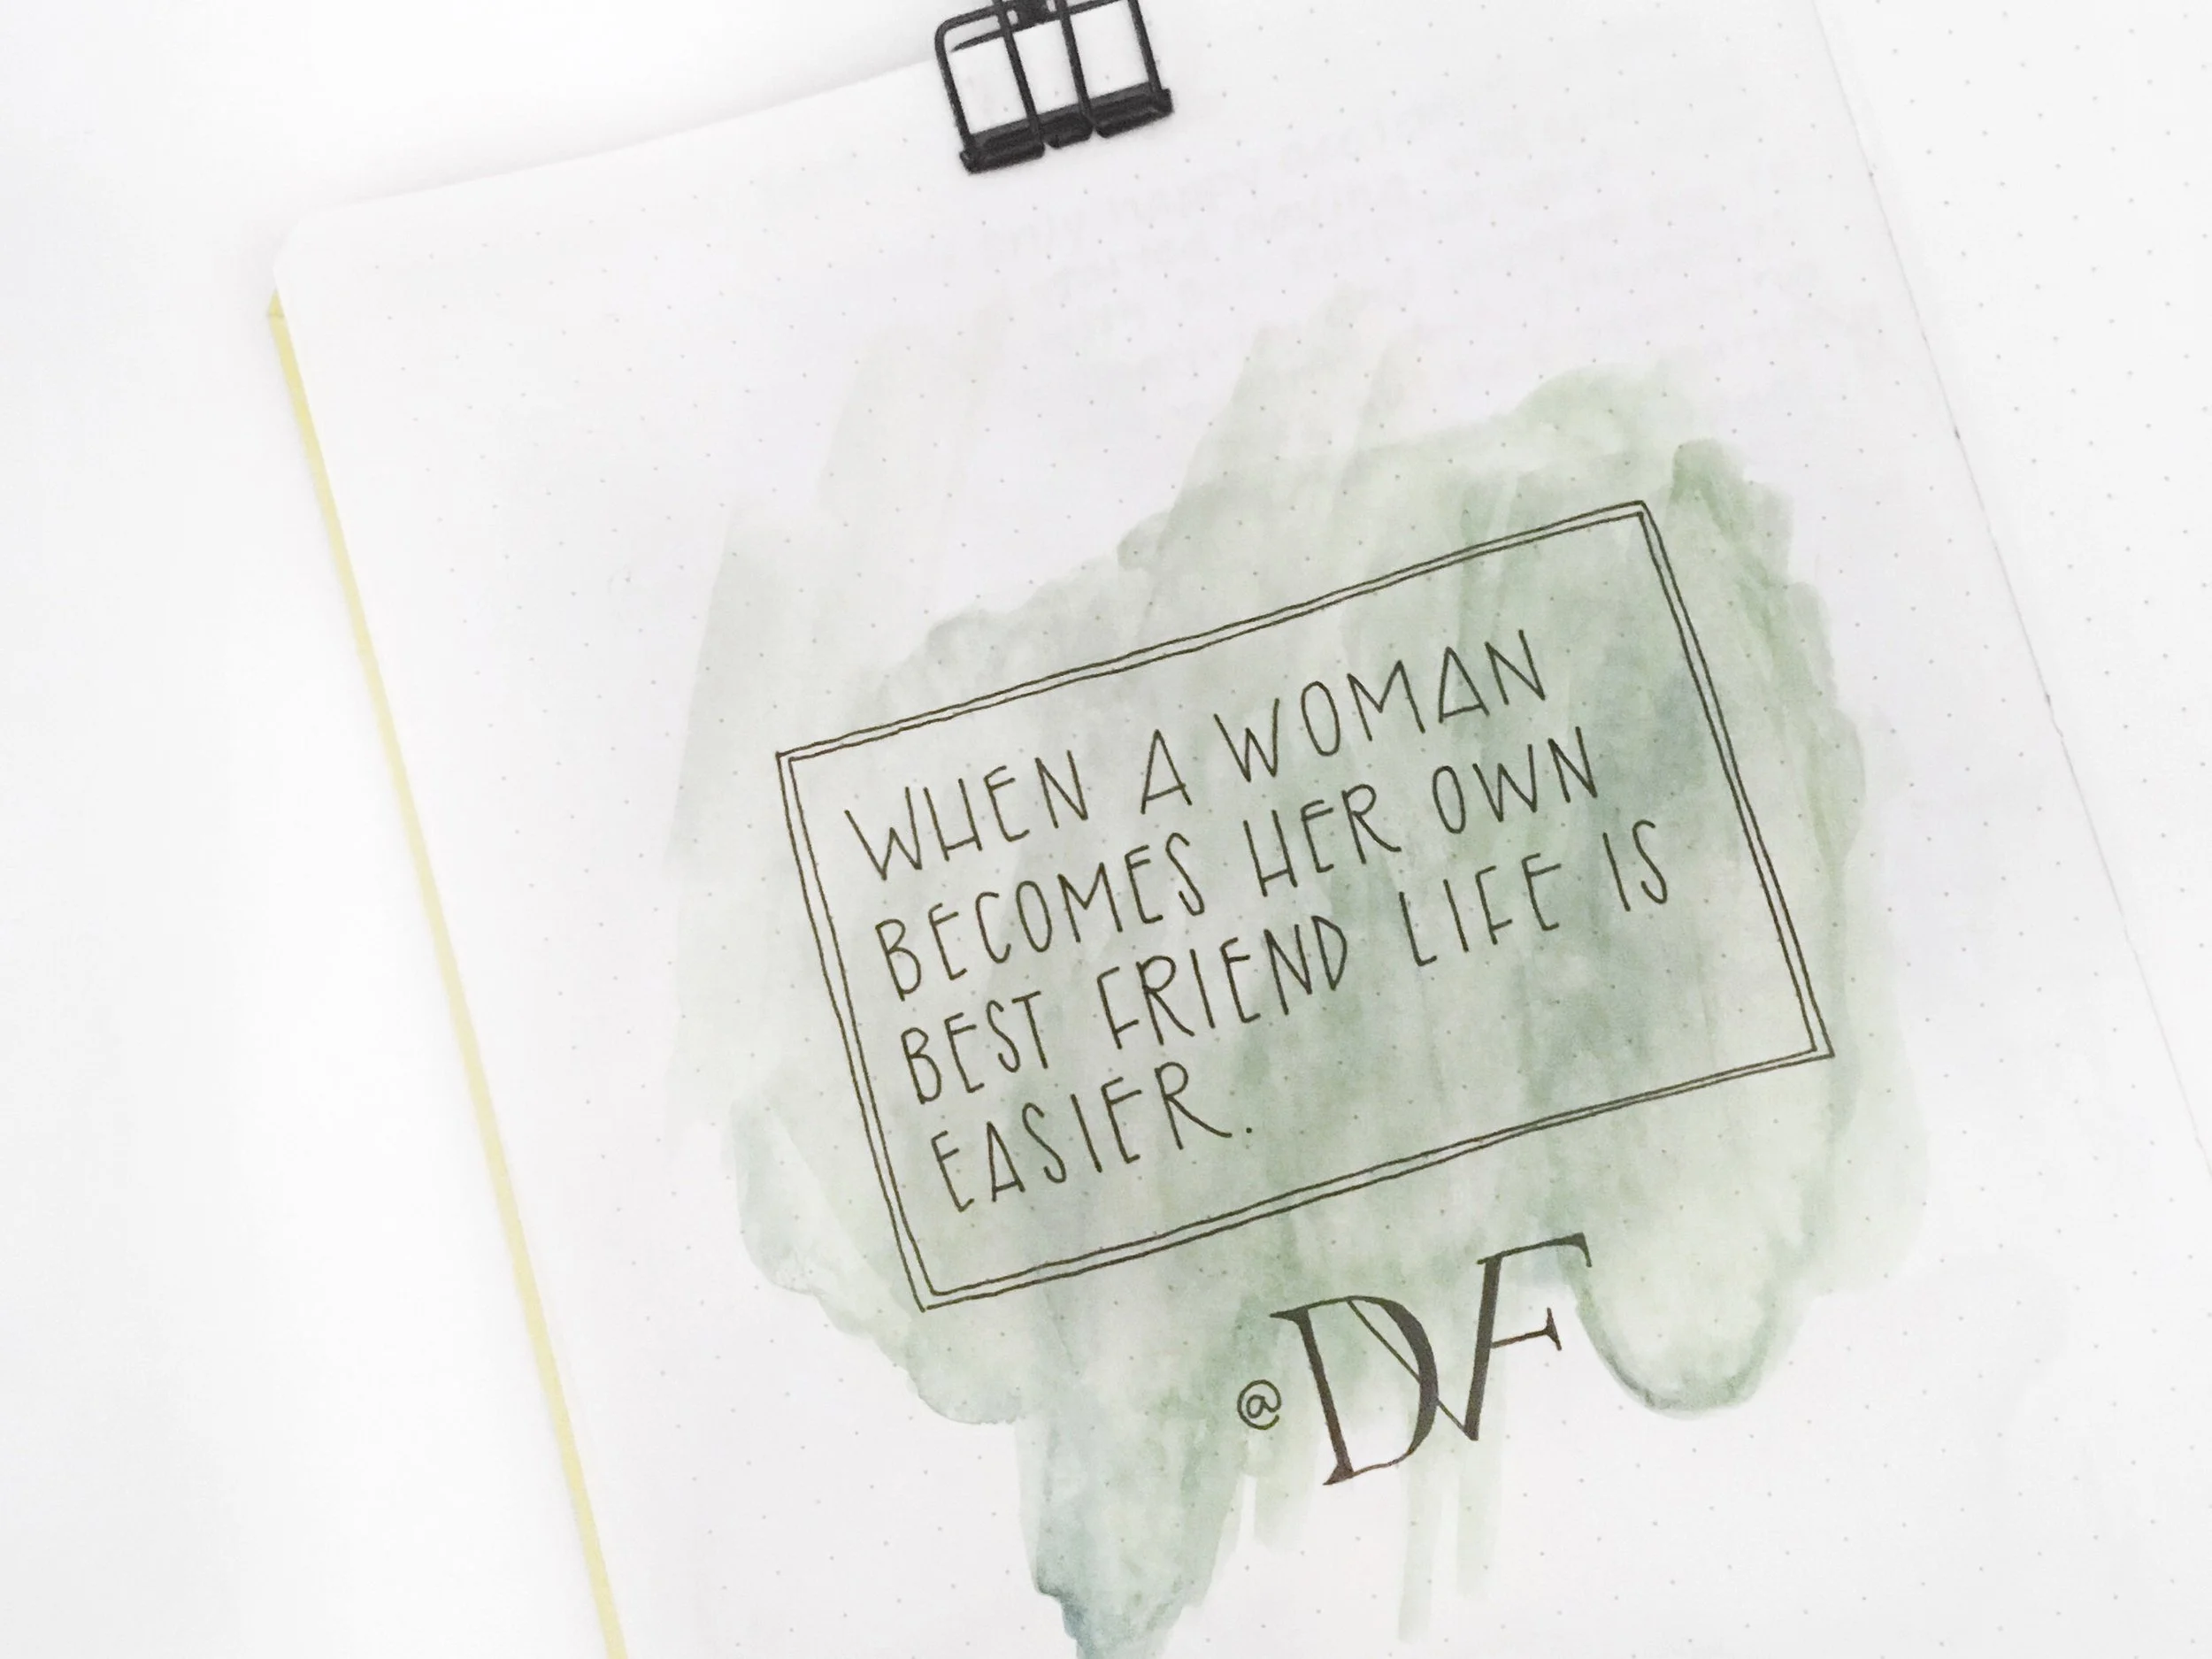 WHEN A WOMAN
BECOMES HER OWN
BEST FRIEND LIFE IS
EASIER.
@DVF